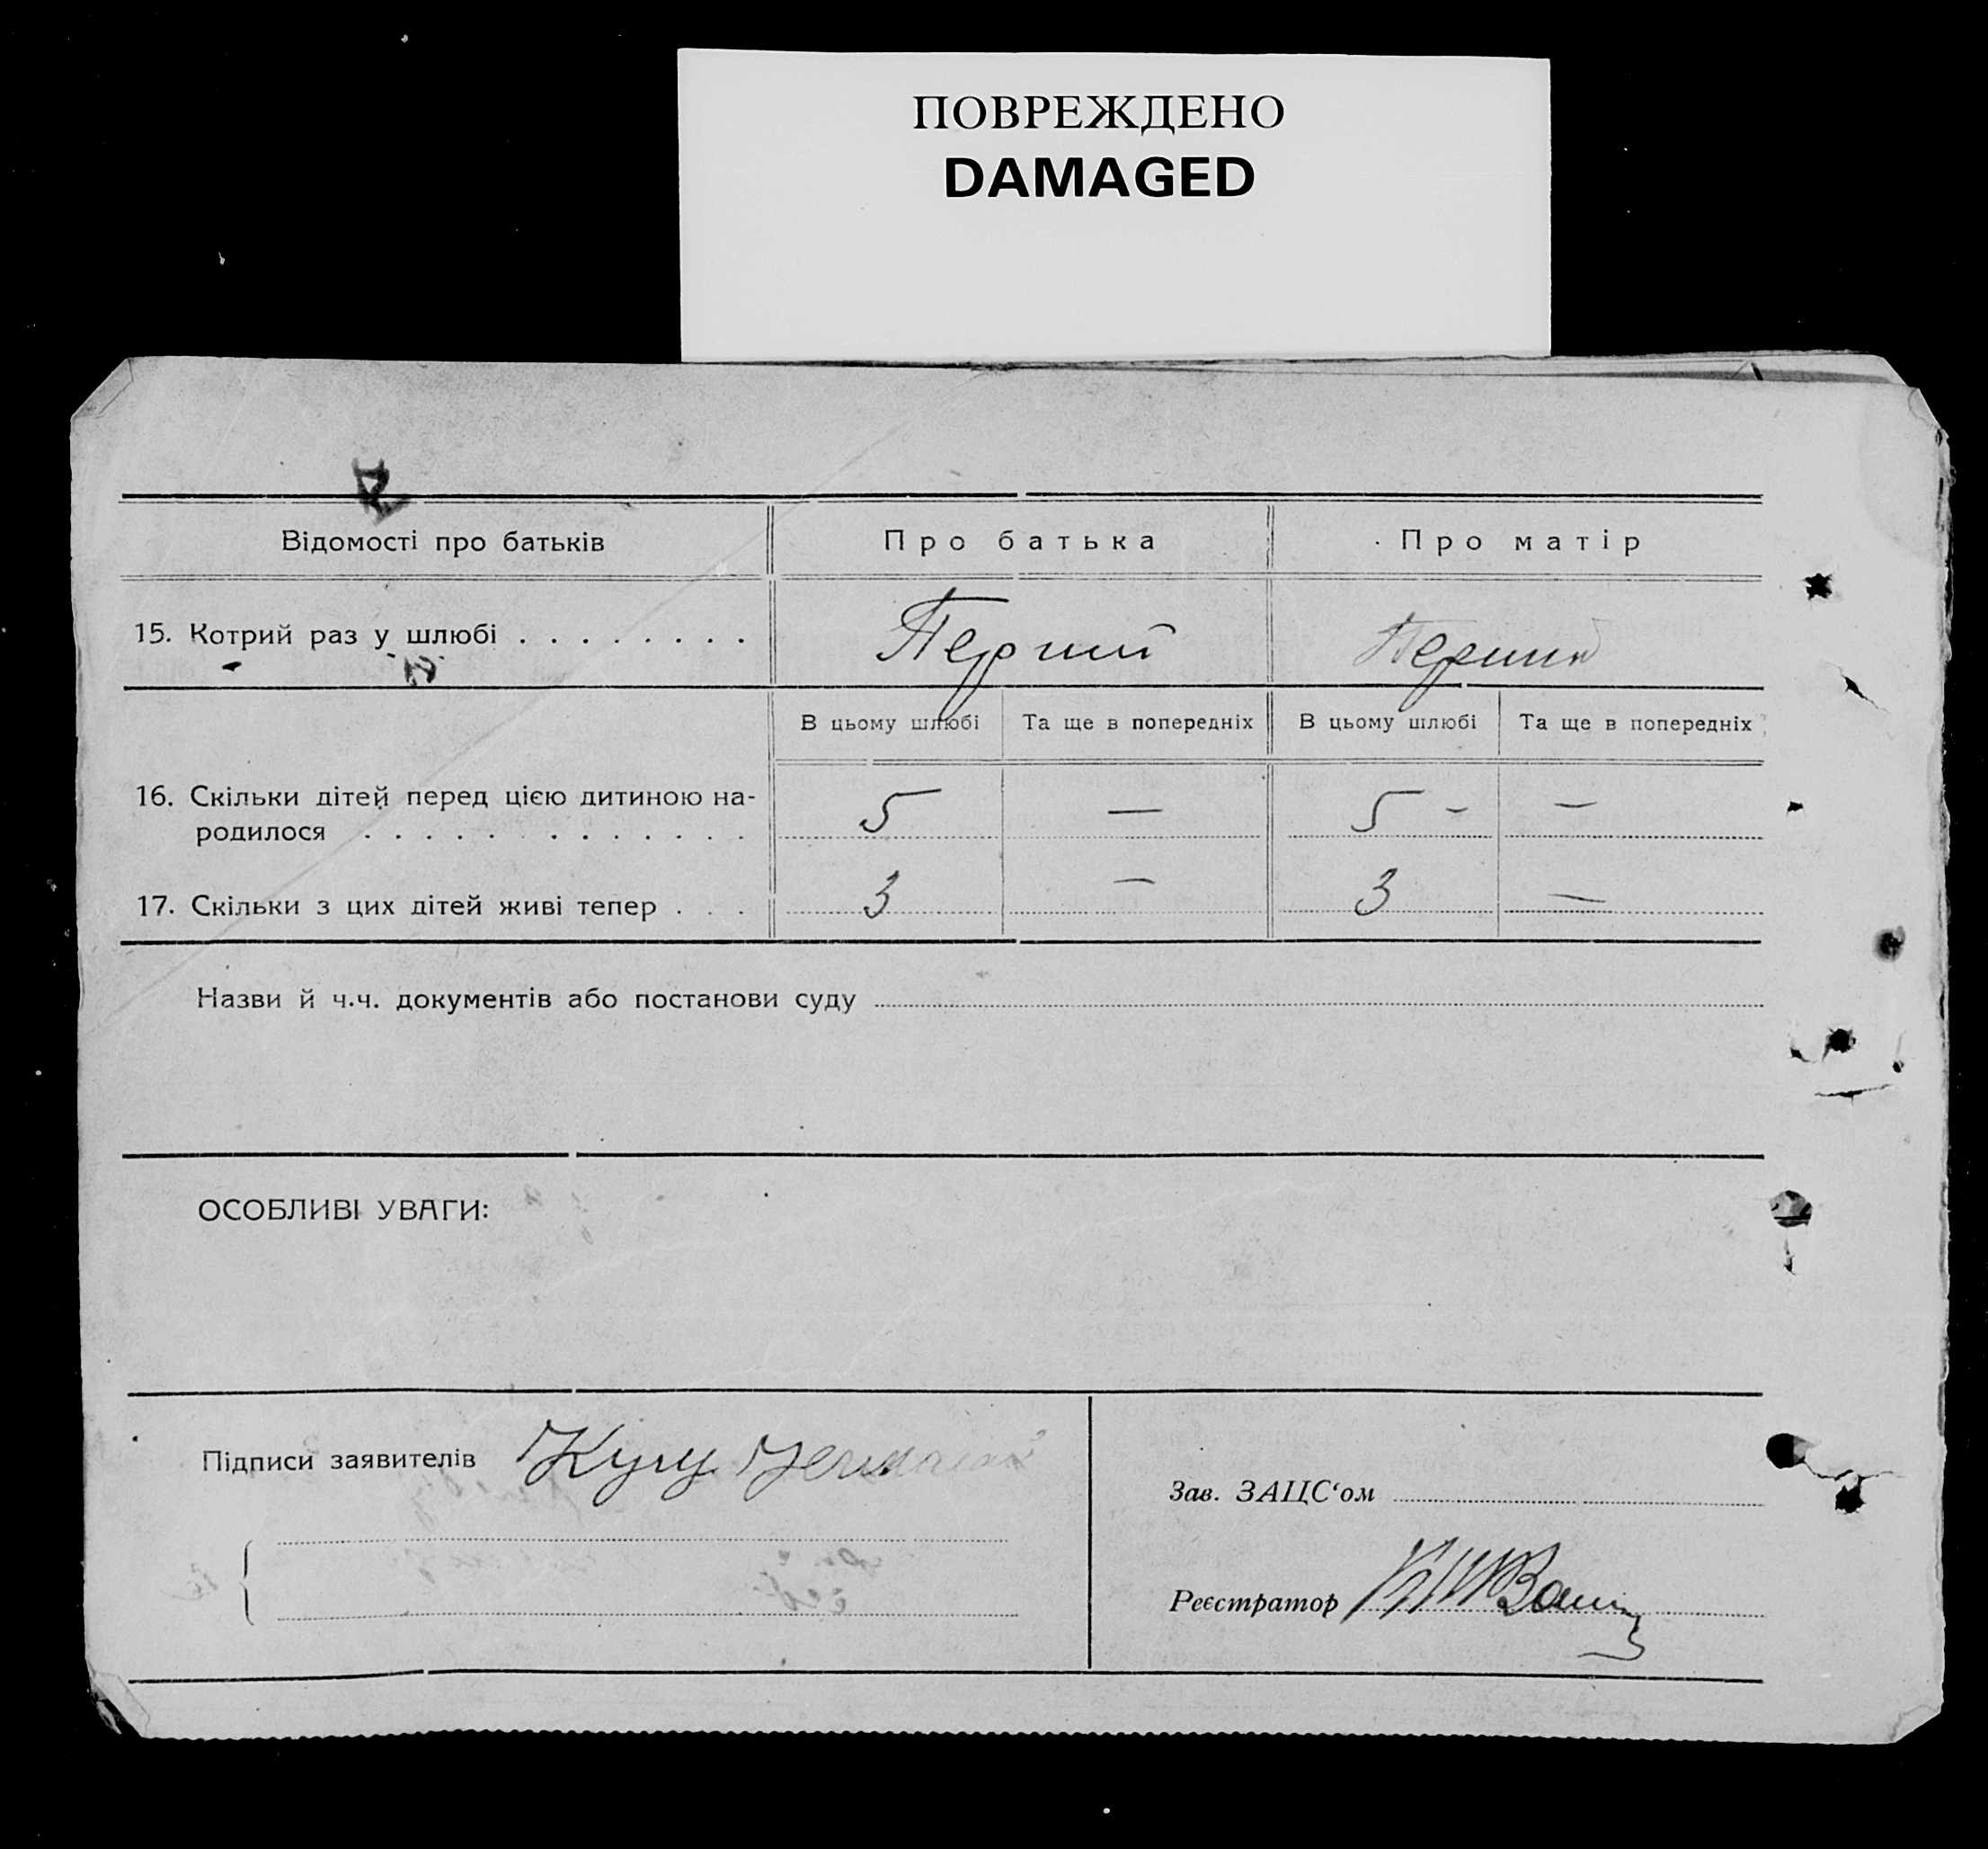 ПОВРЕЖДЕНО
DAMAGED
Відомості про батьків
Про батька
Про матір
15. Котрий раз у шлюбі . . . . . . . .
Перший
Перший
В цьому шлюбі
Та ще в попередніх
В цьому шлюбі
Та ще в попередніх
16. Скільки дітей перед цією дитиною на-
родилося . . . . . . . . . . . . .
5
—
5 -
—
17. Скільки з цих дітей живі тепер . . .
3
—
3
—
Назви й ч.ч. документів або постанови суду
ОСОБЛИВІ УВАГИ:
Підписи заявителів
Зав. ЗАЦС‘ом
Реєстратор